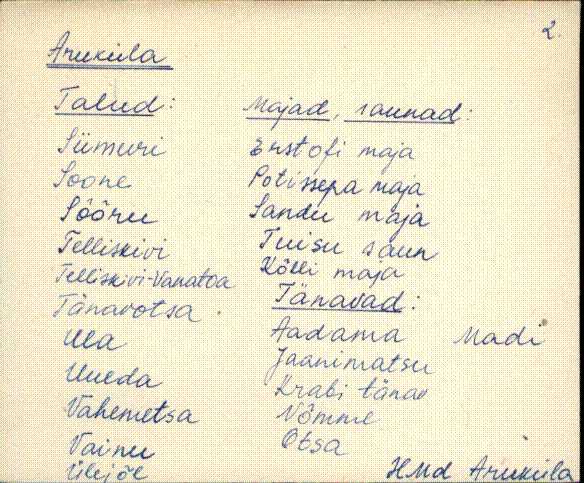 2.
Aruküla
Talud:
Siimuri
Soone
Sõõru
Telliskivi
Telliskivi-Vanatoa
Tänavotsa
Ula
Uueda
Vahemetsa
Vainu
Ülejõe
Majad, saunad:
Erstofi maja
Potissepa maja
Sandu maja
Tuisu saun
Kõlli maja
Tänavad:
Aadama Madi
Jaanimatsu
Krabi tänav
Nõmme
Otsa
HMd Aruküla